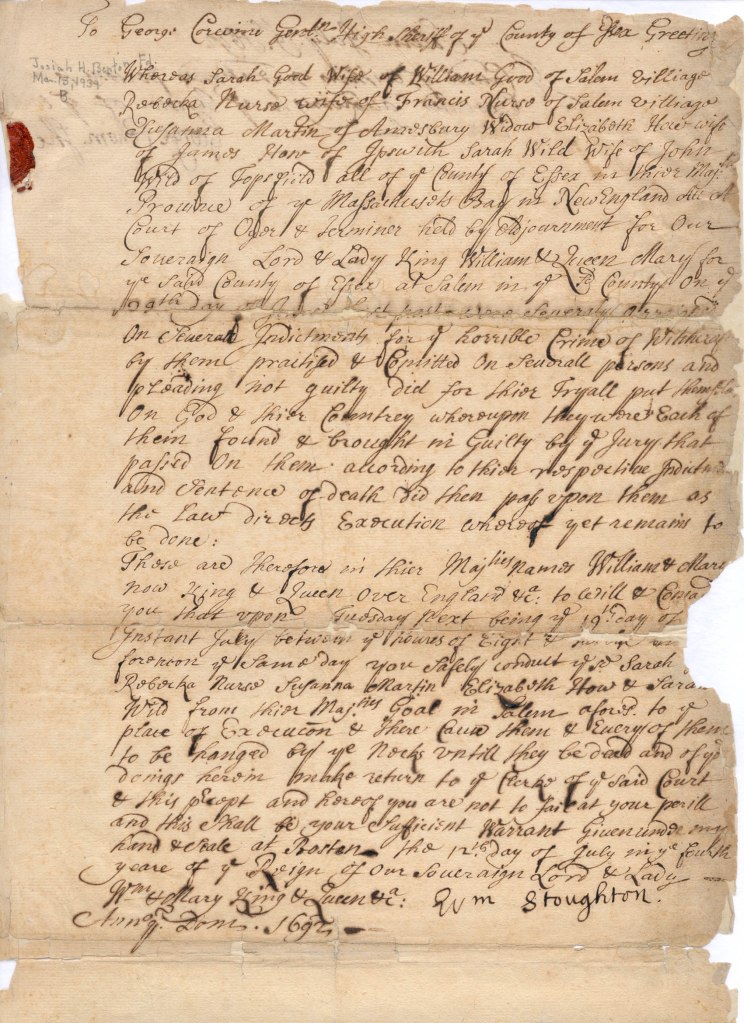 To George Corwine Gentn High Sheriff of ye County of Essex Greeting
Josiah H. Benton Fd.
Mar. 13, 1939
B
Whereas Sarah Good Wife of William Good of Salem Villiage
Rebecka Nurse wife of Francis Nurse of Salem Villiage
Susanna Martin of Amesbury Widow Elizabeth How wife
of James How of Ipswich Sarah Wild Wife of John
Wild of Topsfield all of ye County of Essex in thier Majties
Province of ye Massachusets Bay in New England Att A
Court of Oyer & Terminer held by Adjournment for Our
Soveraign Lord & Lady King William & Queen Mary for
ye said County of Essex at Salem in ye sd County On ye
29th day of June last past were Severaly Arraigned
On Severall Indictments for ye horrible Crime of Witchcraft
by them practised & Comitted On Severall persons and
pleading not guilty did for thier Tryall put themselves
On God & thier Countrey whereupon they were Each of
them found & brought in Guilty by ye Jury that
passed On them according to thier respective Indictments
and Sentence of death did then pass upon them as
the Law directs Execution whereof yet remains to
be done:
These are Therefore in thier Majties Names William & Mary
now King & Queen over England &ca: to Will & Comand
you that upon Tuesday Next being ye 19th day of
Instant July between ye houres of Eight & in
forenoon ye same day you Safely conduct ye sd Sarah
Rebecka Nurse Susanna Martin Elizabeth How & Sarah
Wild from thier Majties Goal in Salem aforesd to ye
place of Execucon & there Cause them & Every of them
to be hanged by ye Necks untill they be dead and of ye
doings herein make return to ye Clerke of ye said Court
& this precept and hereof you are not to fail at your perill
and this Shall be your Sufficient Warrant Given under my
hand & Seale at Boston the 12th day of July in ye fourth
yeare of ye Reign of Our Soveraign Lord & Lady
Wm & Mary King & Queen &ca: Wm Stoughton.
Annoq Dom. 1692